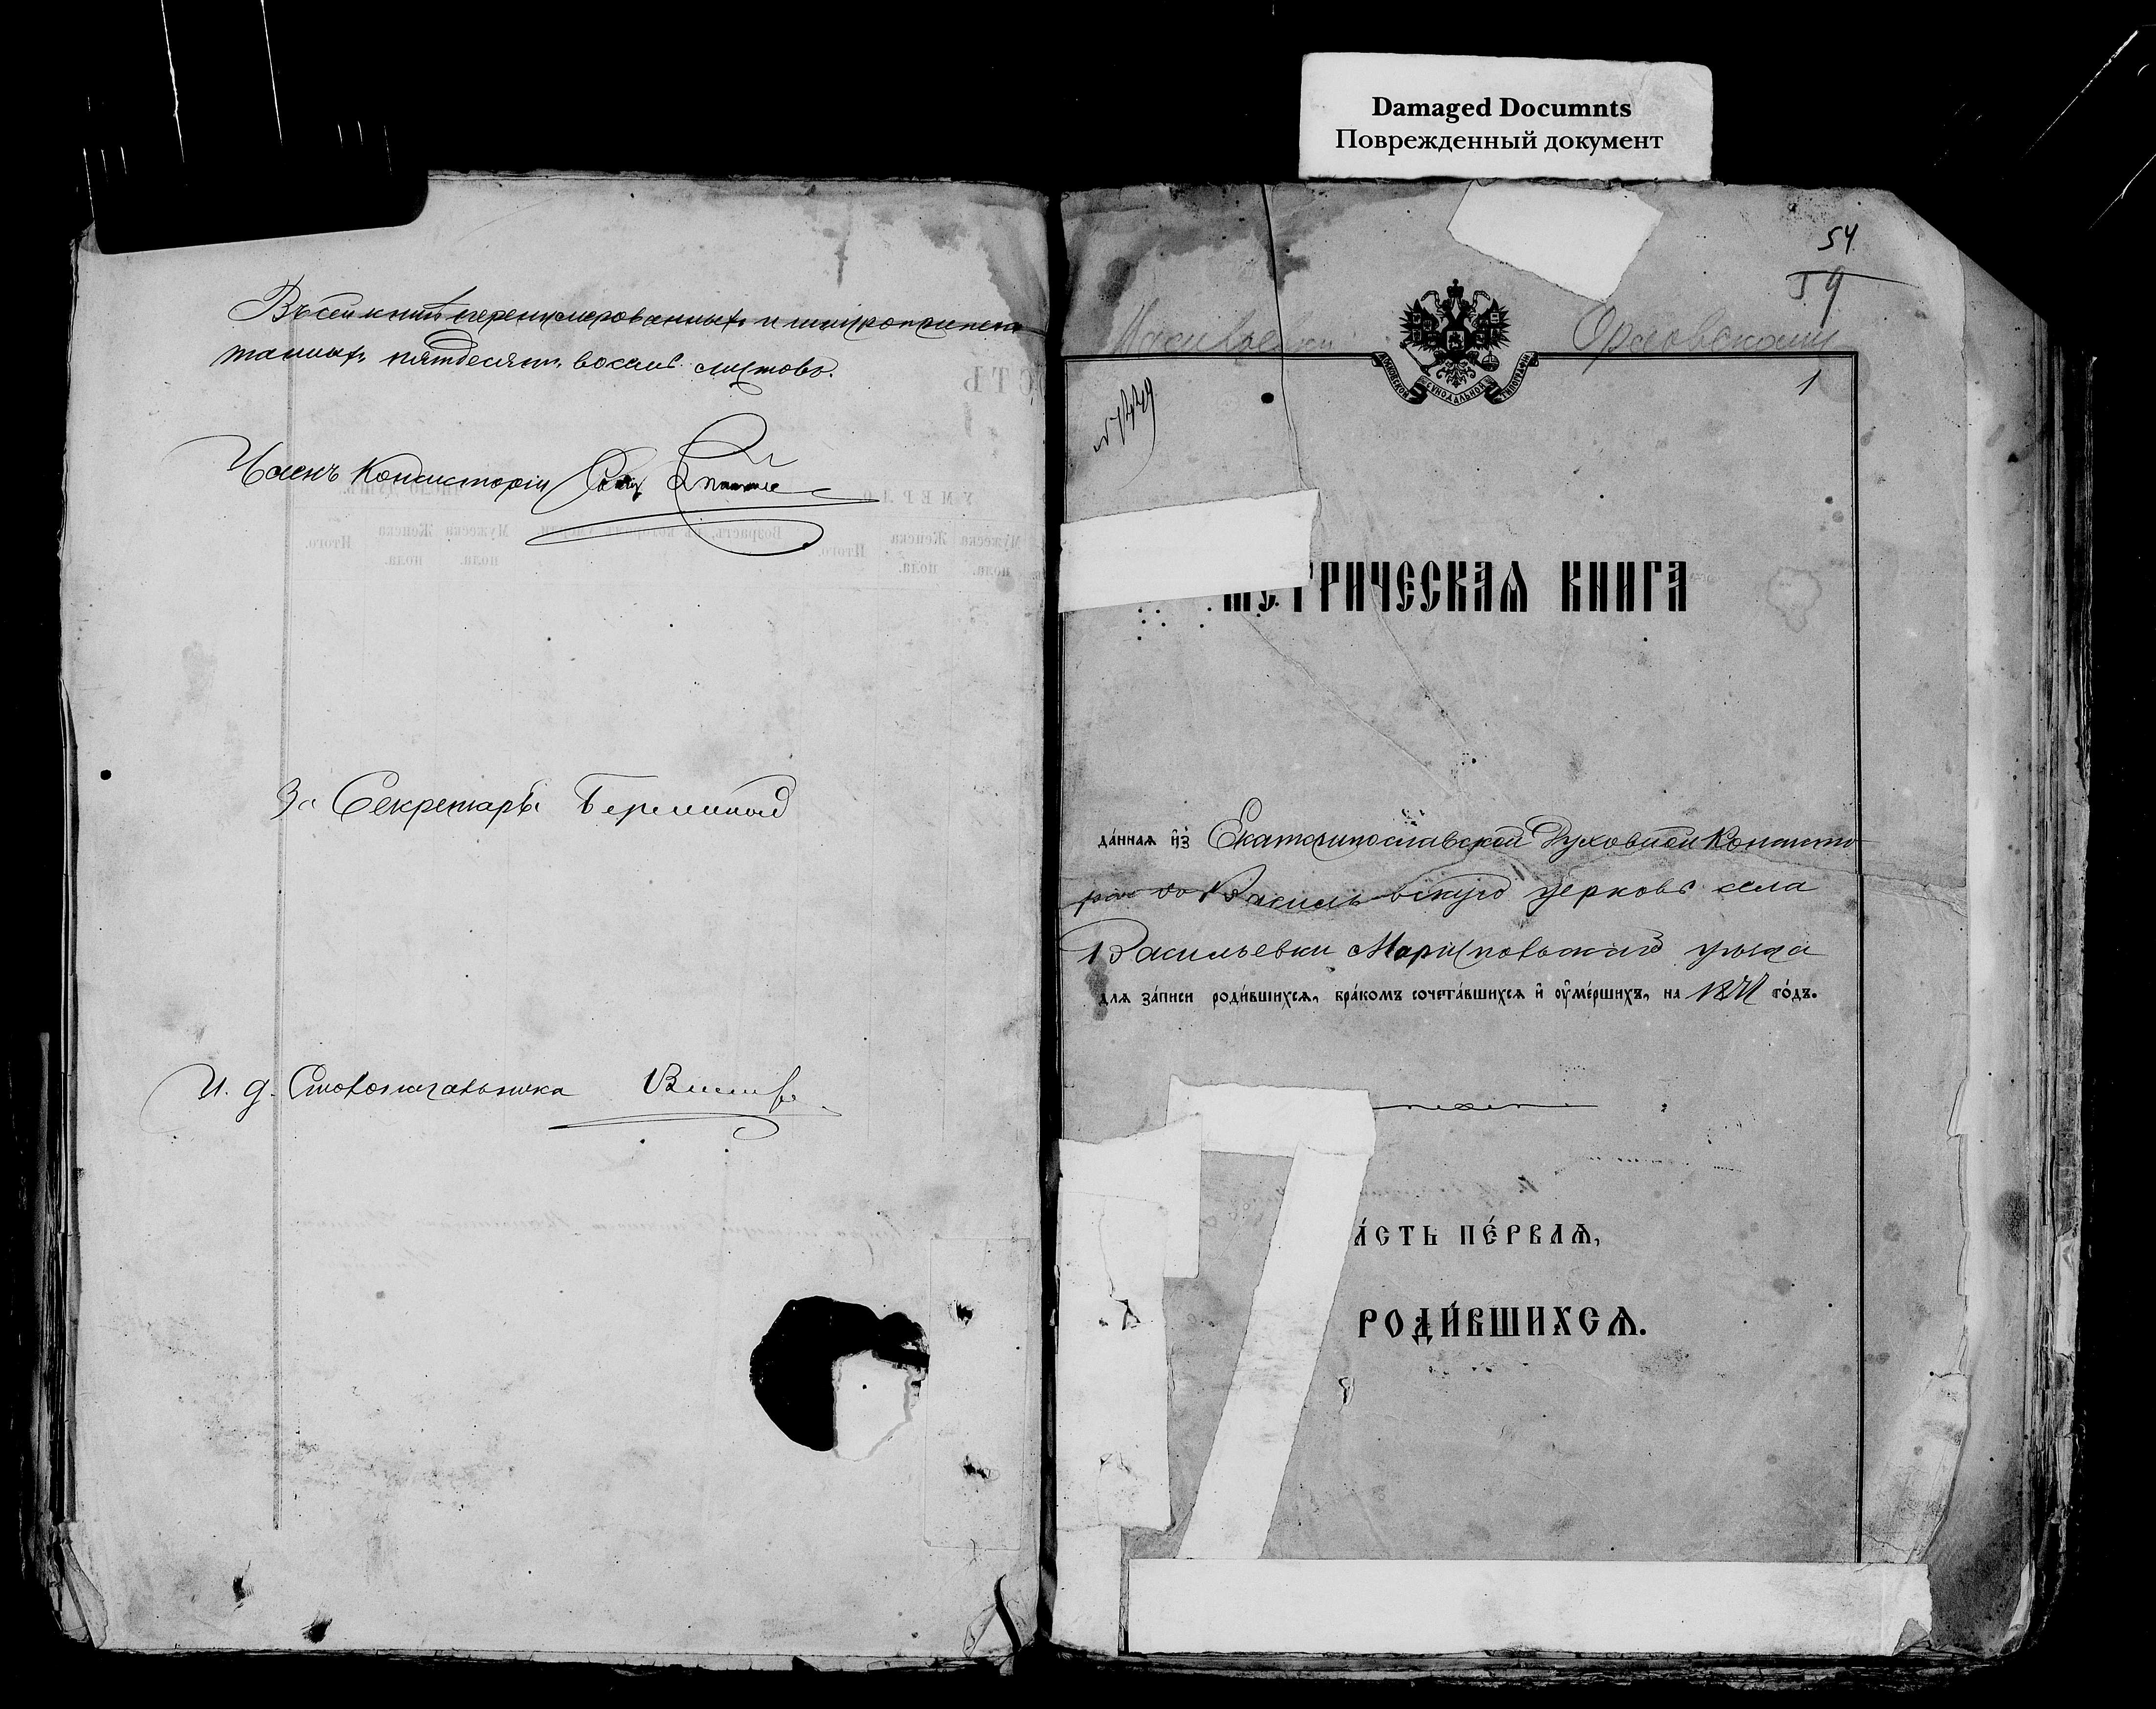 Damaged Documnts
Поврежденный документ
Въ сей книгѣ перенумерованныхъ и шнуроприпеча
танныхъ пятдесятъ восемь листовъ.
Членъ Консисторіи
За Секретаря
И. д. Столоначальника
54
59
Васильевки
1
МОСКОВСКОЙ СѴНОДАЛЬНОЙ ТИПОГРАФІИ
МЕТРИЧЕСКАѦ КНИГА
да́ннаѧ и҆з̾ Екатеринославской Духовной Консисто
ріи въ Васильевскую церковь села
Васильевки Маріупольскаго уѣзда
длѧ за́писи роди́вшихсѧ, бра́комъ сочета́вшихсѧ и҆ ѹ҆ме́ршихъ, на го́дъ.
А́СТЬ ПЕ́РВАѦ,
РОДИ́ВШИХСѦ.